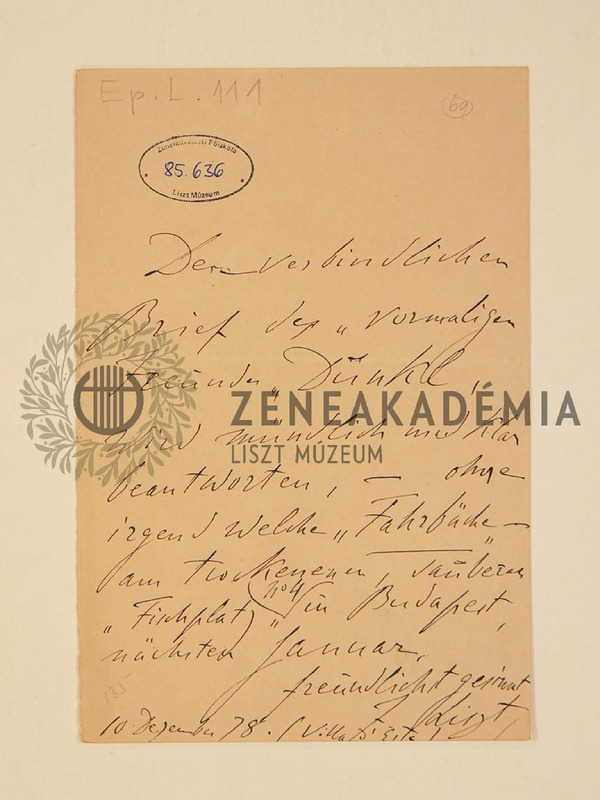 Ep. L. 111
69
Zeneművészeti Főiskola
85.636
Liszt Múzeum
Den verbindlichen
Brief des „vormaligen
Freundes" Dunkl,
wird mündlich und klar
beantworten, — ohne
irgend welche „
am trockenen, sauberen
„Fischplatz" (no 4) in Budapest,
nächsten Januar,
freundlichst gesinnt
F. Liszt,
10 Dezember 78. (Villa d'Este)
ZENEAKADÉMIA
LISZT MÚZEUM